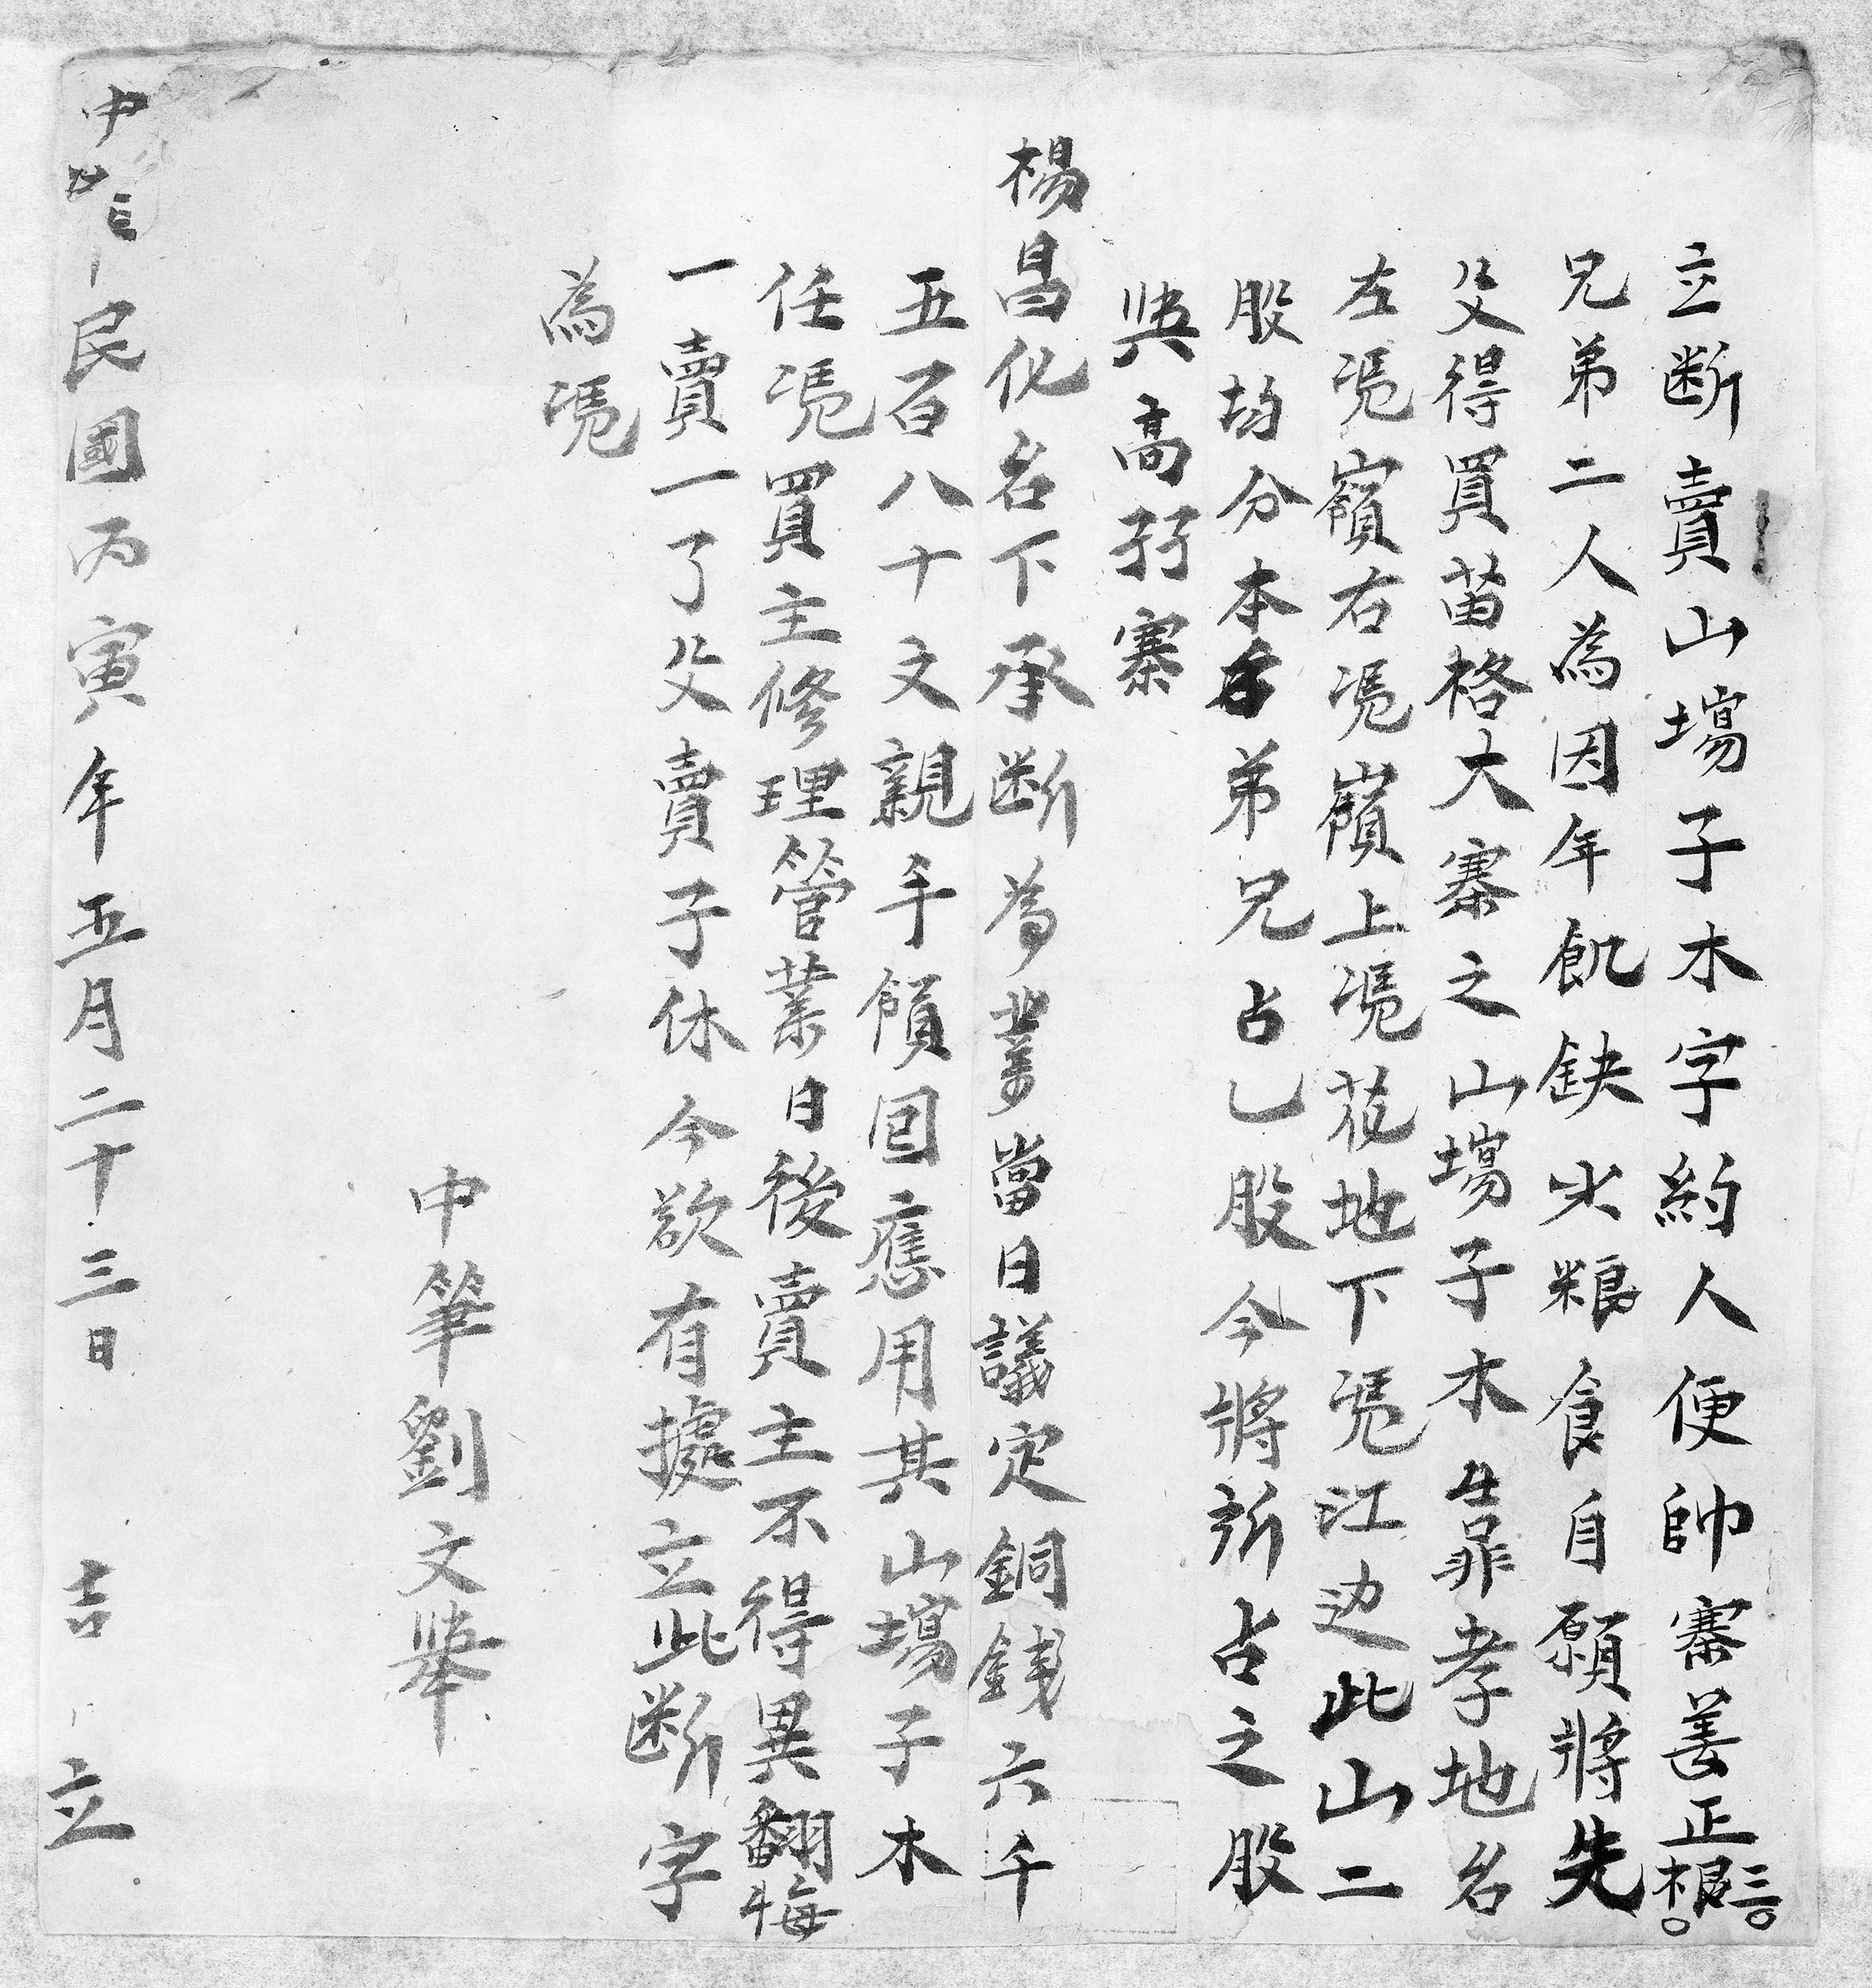 立断賣山塲子木字約人便帥寨姜正根三
兄弟二人為因年飢缺少粮食自願將先
父得買苗格大寨之山塲子木靠孝地名
左凴嶺右凴嶺上凴荒地下凴江边此山二
股均分本名弟兄占乙股今將所占之股
與高孖寨
楊昌化名下承断為業當日議定銅錢六千
五百八十文親手領回應用其山塲子木
任凴買主修理管業日後賣主不得異翻悔
一賣一了父賣子休今欲有據立此断字
為凴
中筆劉文舉
民國丙寅年五月二十三日 吉立
中廿三